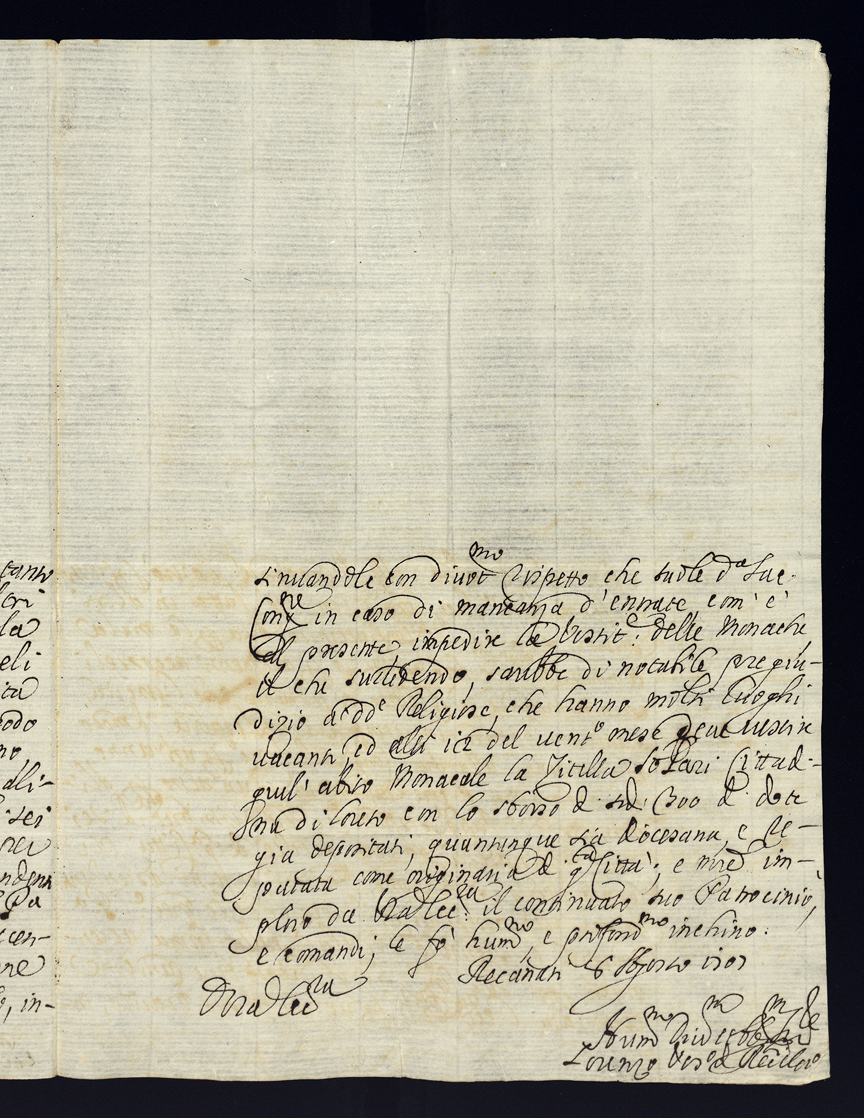 tanto
cri
la
eli
ita
odo
no,
ali-
sei
cen-
ne
o, in-
sinuandole con divot.mo rispetto che suole d.a Sac.
Cong.ne in caso di mancanza d'entrate, com'è
al presente, impedire le Vestit.e delle Monache
il che succedendo, sarebbe di notabile pregiu-
dizio a d.e Religiose, che hanno molti luoghi
vacanti, ed alli 12 del vent.o mese deve vestire
quest'abito Monacale la Zitella Solari Cittad-
ina di Loreto con lo sborso di sc.di 300 di dote
gia depositati, quantunque sia diocesana, e re-
putata come originaria di q.ta Città; e mentre im-
ploro da V.ra Ecc.za il continuato suo Patrocinio,
e comandi; le fò hum.mo, e profond.mo inchino.
Recanati 6 Agosto 1707
Di V.ra Ecc.za
Hum.mo Div.mo
Lorenzo Vesc.o di